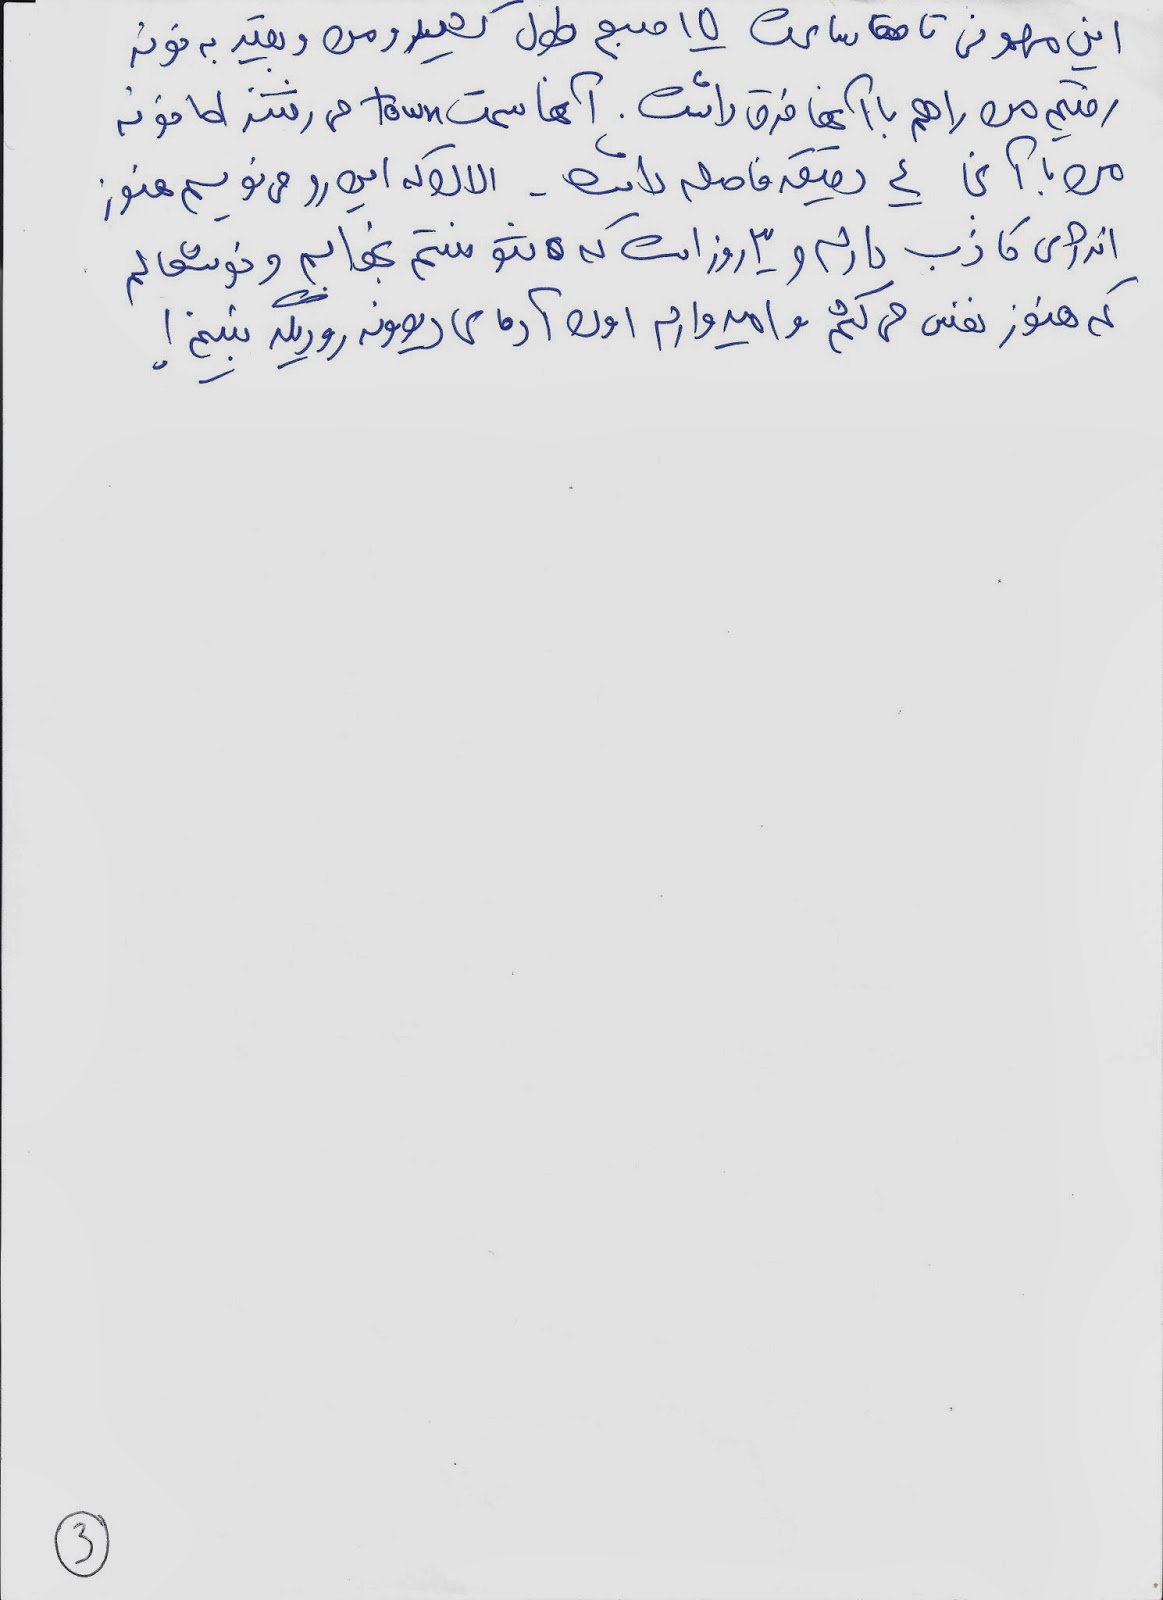 این مهمونی تا ساعت ۱۵ صبح طول کشید و من و بقیه به خونه
رفتیم من راهم با آنها فرق داشت. آنها سمت town می رفتند اما خونه
من با آنها ۴ دقیقه فاصله داشت - الان که این رو می نویسم هنوز
انرژی کاذب دارم و ۳ روز است که نتونستم بخوابم و خوشحالم
که هنوز نفس می کشم و امیدوارم اون آدمای دیوونه رو دیگه نبینم!
3